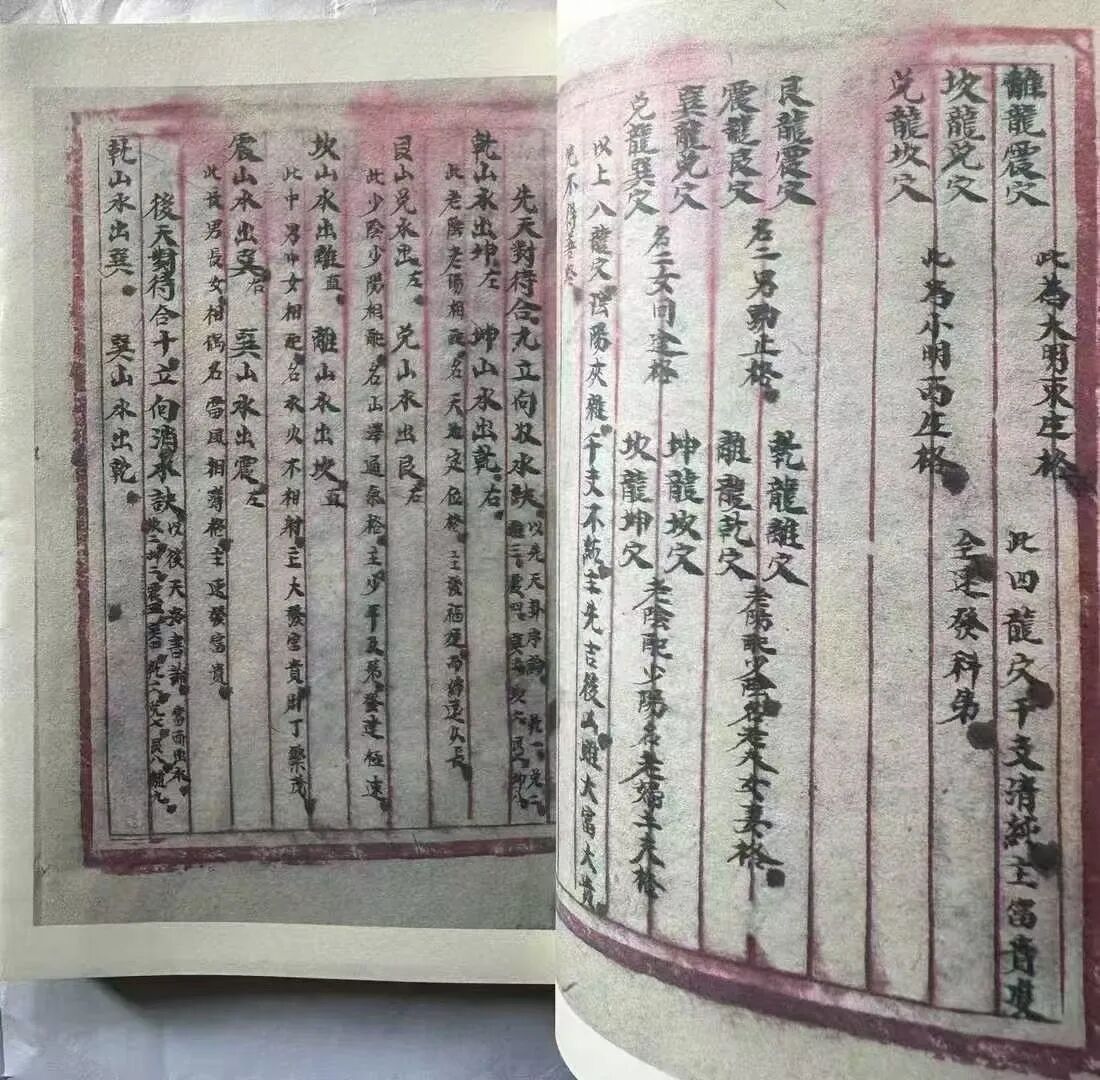 離龍震穴
此為大明東庄格
此四龍穴干支清純主富貴雙
全速發科弟
坎龍兌穴
兌龍坎穴
此名小明西庄格
艮龍震穴
震龍艮穴
名二男助止格
巽龍兌穴
兌龍巽穴
名二女同逢格
乾龍離穴
離龍乾穴
老陽配少陰名老夫少妻格
坤龍坎穴
坎龍坤穴
老陰配少陽名老婦士夫格
以上八龍穴陰陽夾雜干支不純主先吉後凶雖大富大貴
先天對待合九立向收水訣
以先天卦序論 乾一 兌二
離三 震四
乾山水出坤左 坤山水出乾右
此老陰老陽相配名天地定位格主發福
艮山兌水出左 兌山水出艮右
此少陰少陽相配名山澤通氣格主少年及第發達極速
坎山水出離直 離山水出坎直
此中男中女相配名水火不相射主大發富貴財丁繁茂
震山水出巽右 巽山水出震左
此長男長女相偶名雷風相薄格主速發富貴
後天對待合十立向消水訣
以後天洛書論
乾山水出巽 巽山水出乾